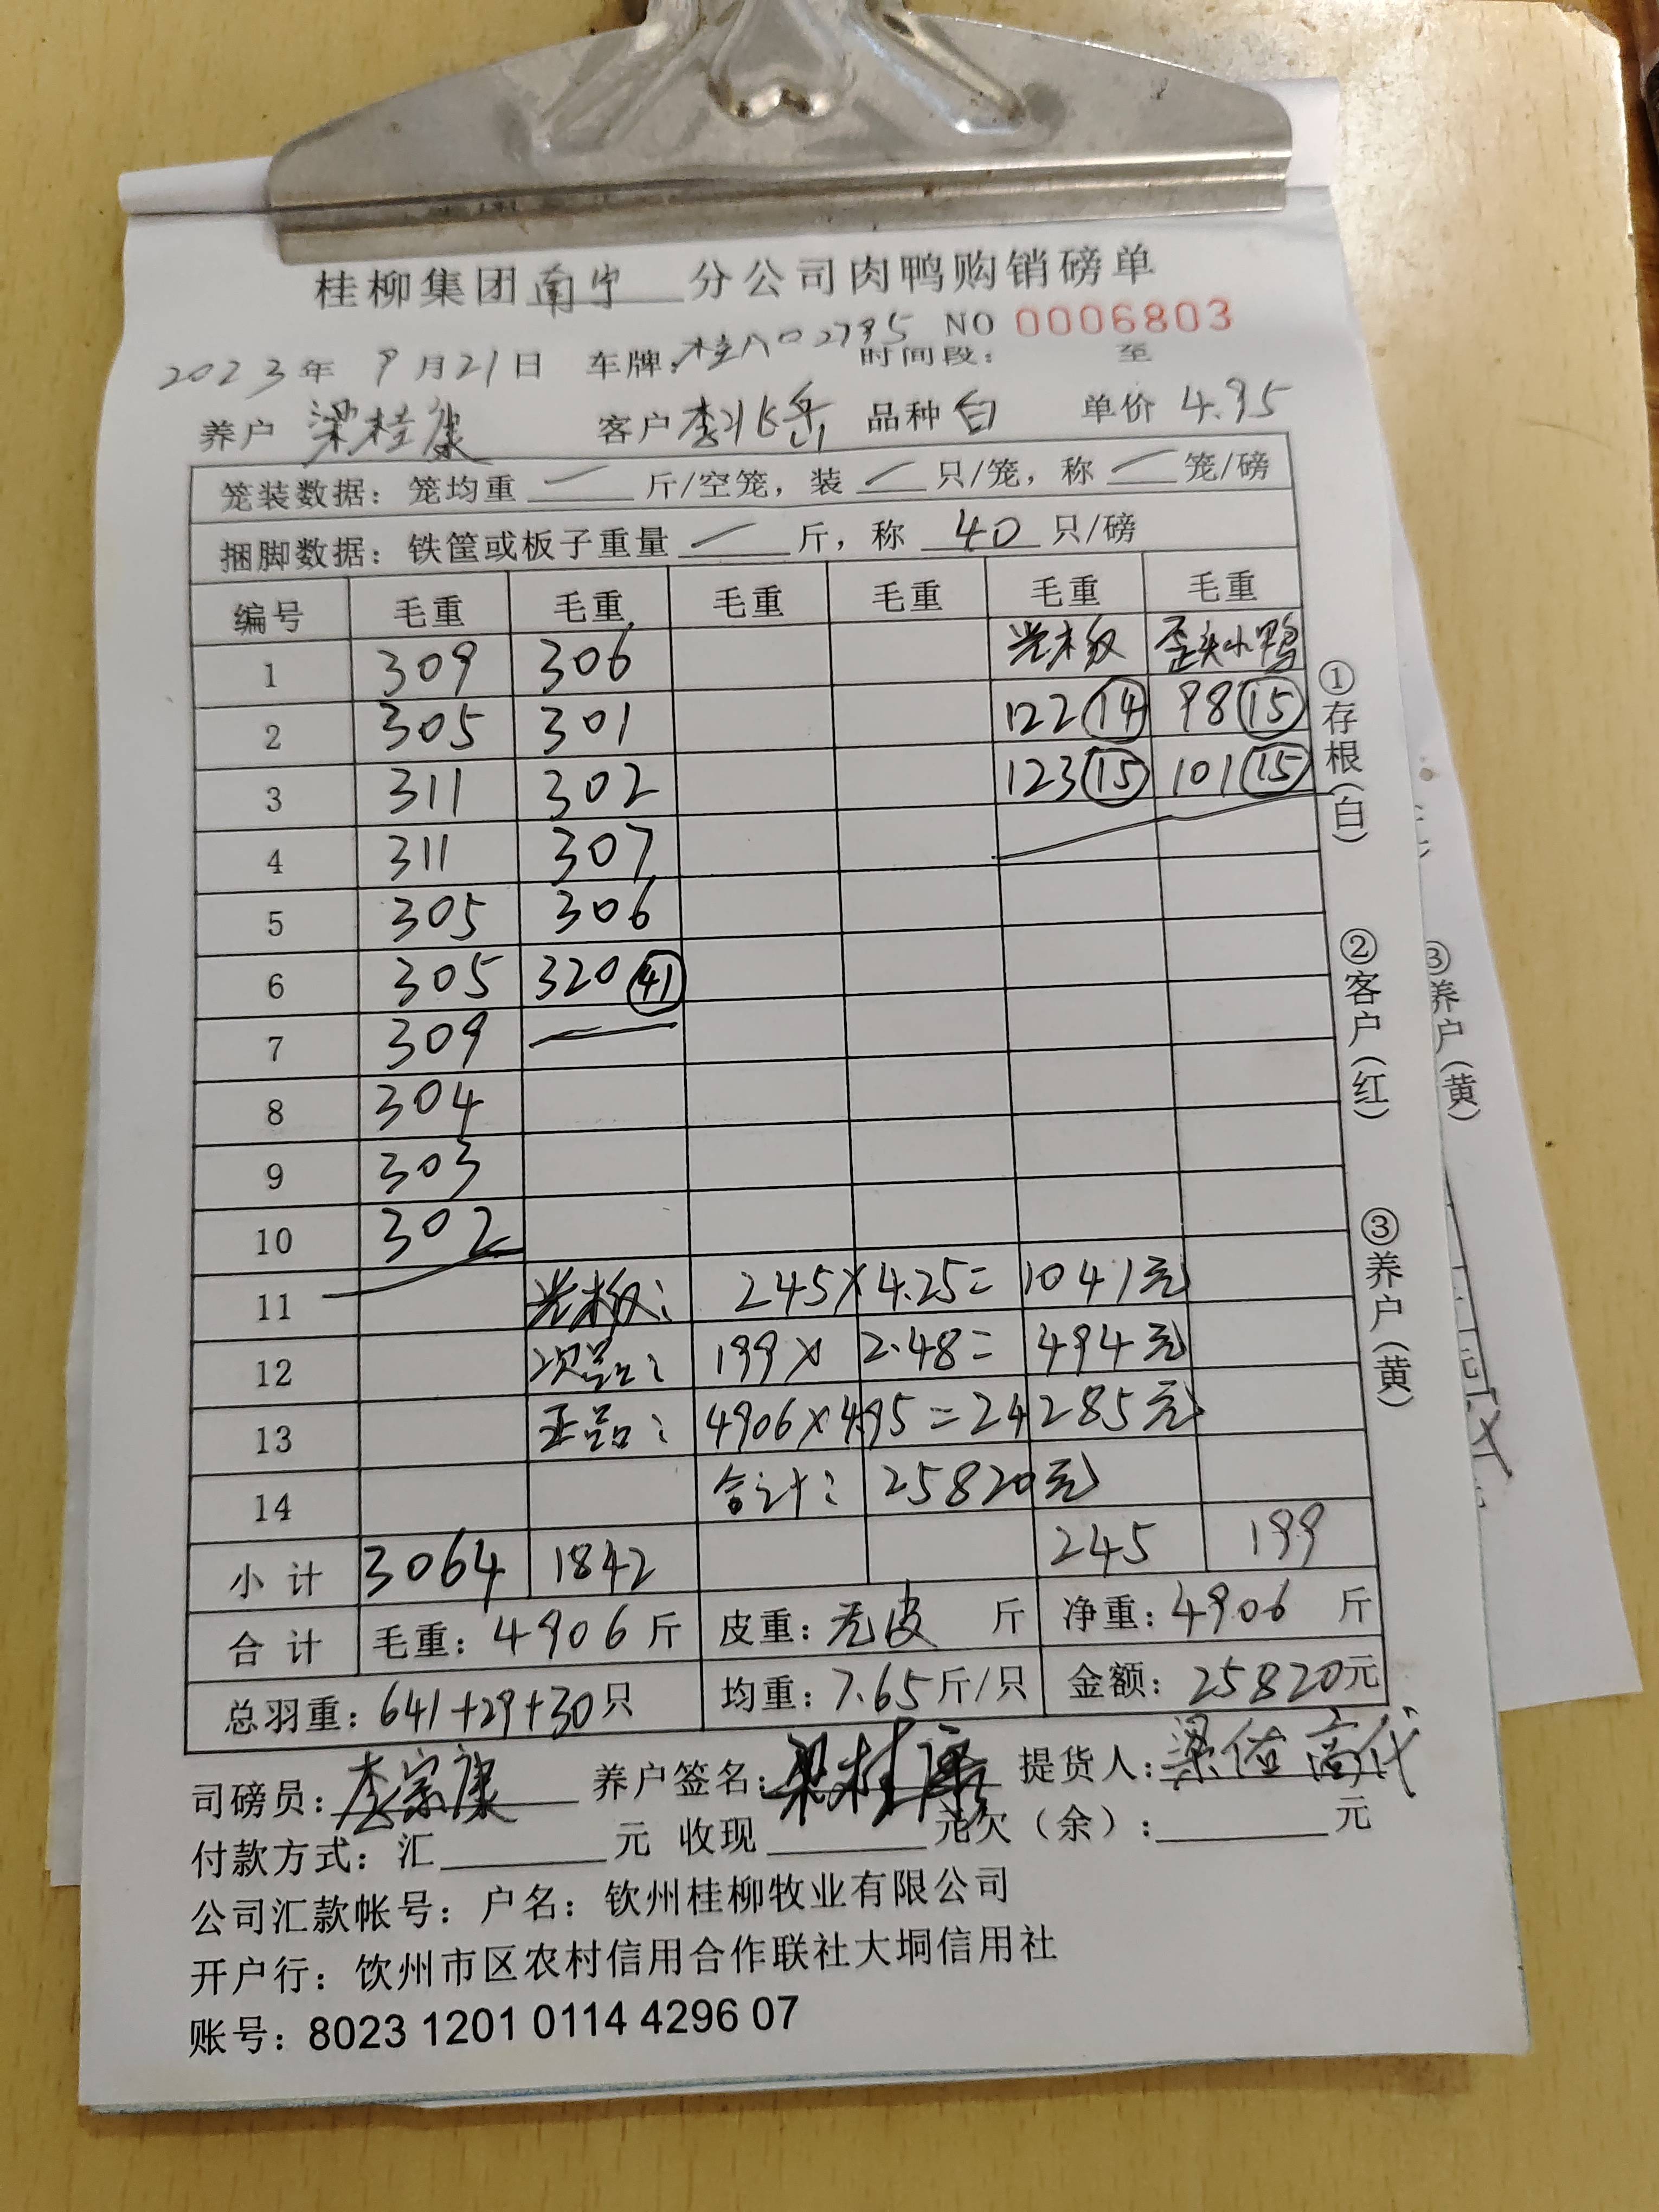 桂柳集团南宁分公司肉鸭购销磅单
NO 0006803
2023年 9月21日 车牌:桂A02795 时间段: 至
养户 梁桂康 客户 李北岳 品种 白 单价 4.95
笼装数据: 笼均重 — 斤/空笼, 装 — 只/笼, 称 — 笼/磅
捆脚数据: 铁筐或板子重量 — 斤, 称 40 只/磅
编号 毛重 毛重 毛重 毛重 毛重 毛重
1 309 306 光板 歪头小鸭
2 305 301 122 14 98 15
3 311 302 123 15 101 15
4 311 307
5 305 306
6 305 320 41
7 309
8 304
9 303
10 302
11 光板: 245×4.25= 1041元
12 次品: 199× 2.48= 494元
13 正品: 4906×4.95=24285元
14 合计: 25820元
小计 3064 1842 245 199
合计 毛重: 4906斤 皮重: 无皮 斤 净重: 4906 斤
总羽重: 641+29+30只 均重: 7.65斤/只 金额: 25820元
司磅员: 李家康 养户签名: 梁桂康 提货人: 高代
付款方式: 汇 元 收现 元欠(余): 元
公司汇款帐号: 户名: 钦州桂柳牧业有限公司
开户行: 饮州市区农村信用合作联社大垌信用社
账号: 8023 1201 0114 4296 07
①存根(白)
②客户(红)
③养户(黄)
③养户(黄)